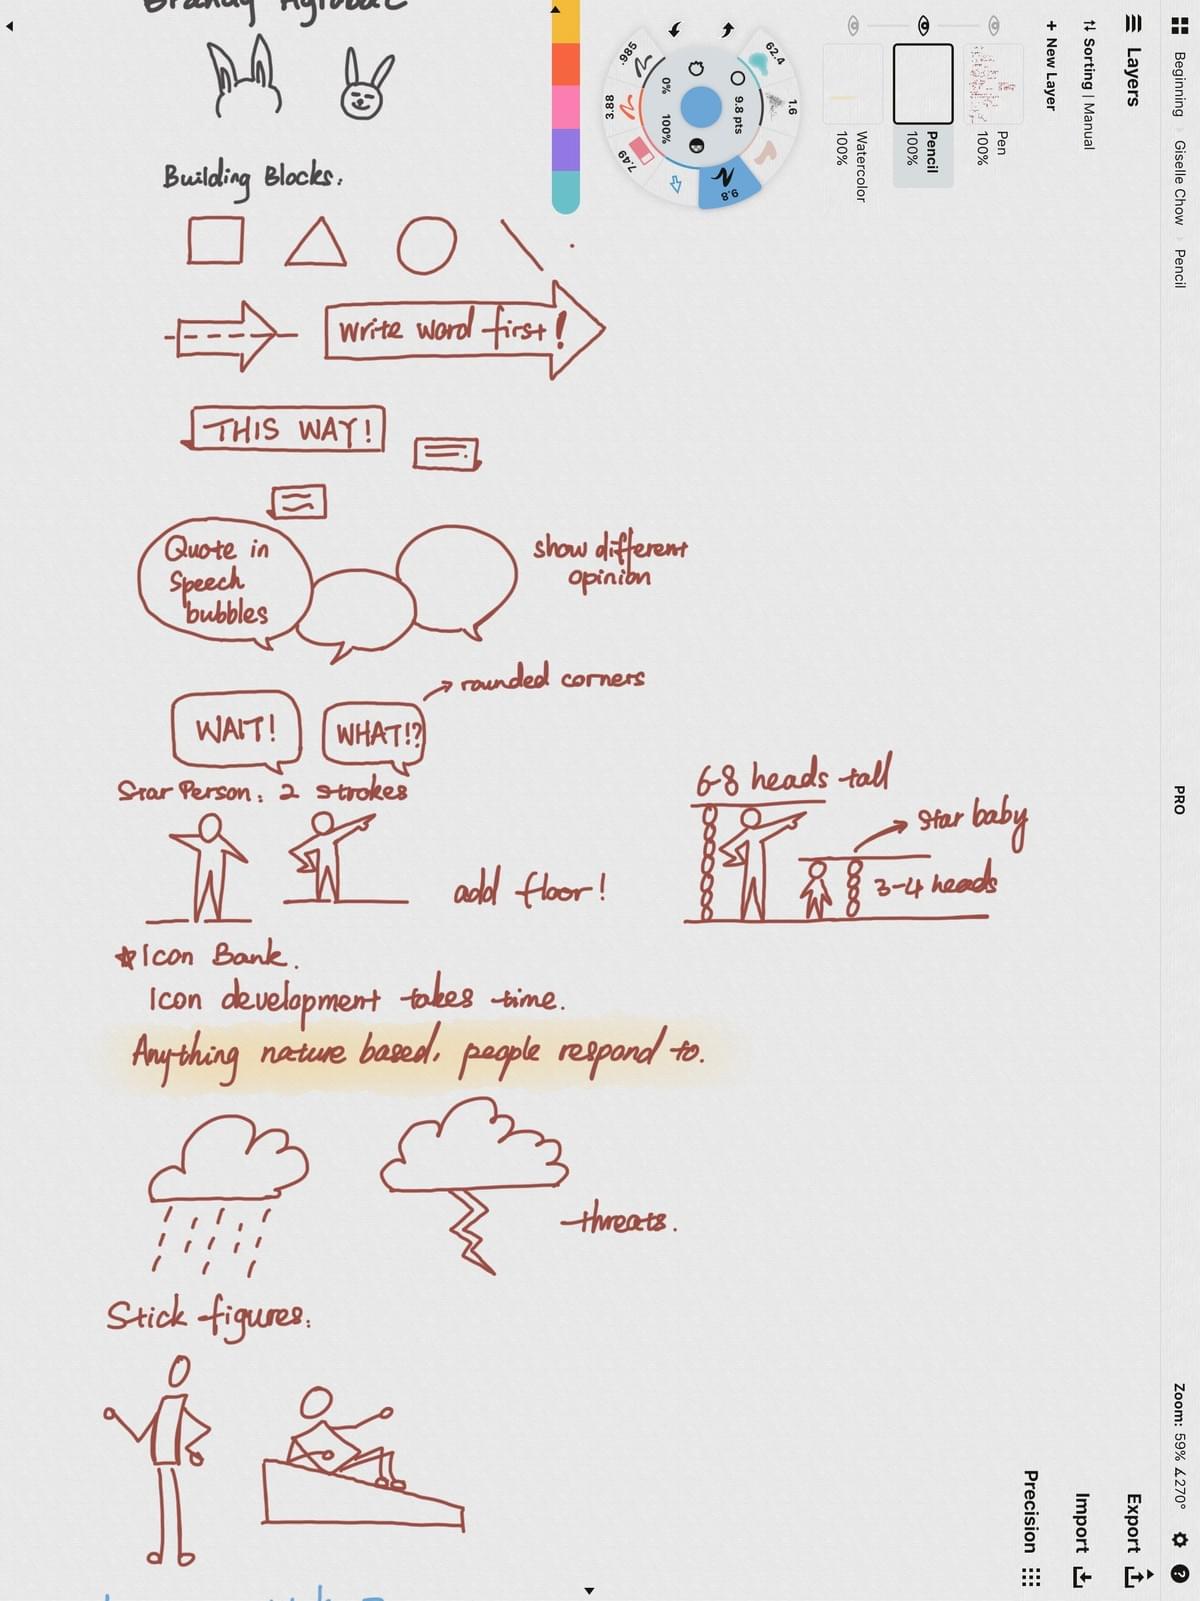 Building Blocks:
Write word first!
THIS WAY!
Quote in
Speech
bubbles
show different
opinion
rounded corners
WAIT!
WHAT!?
Star Person: 2 strokes
6-8 heads tall
star baby
3-4 heads
add floor!
Icon Bank.
Icon development takes time.
Anything nature based, people respond to.
threats.
Stick figures:
Beginning
Giselle Chow
Pencil
PRO
Zoom: 59% ∡270°
Layers
Sorting | Manual
+ New Layer
Pen
100%
Pencil
100%
Watercolor
100%
Export
Import
Precision
62.4
1.6
9.8
7.49
3.88
.985
9.8 pts
0%
100%